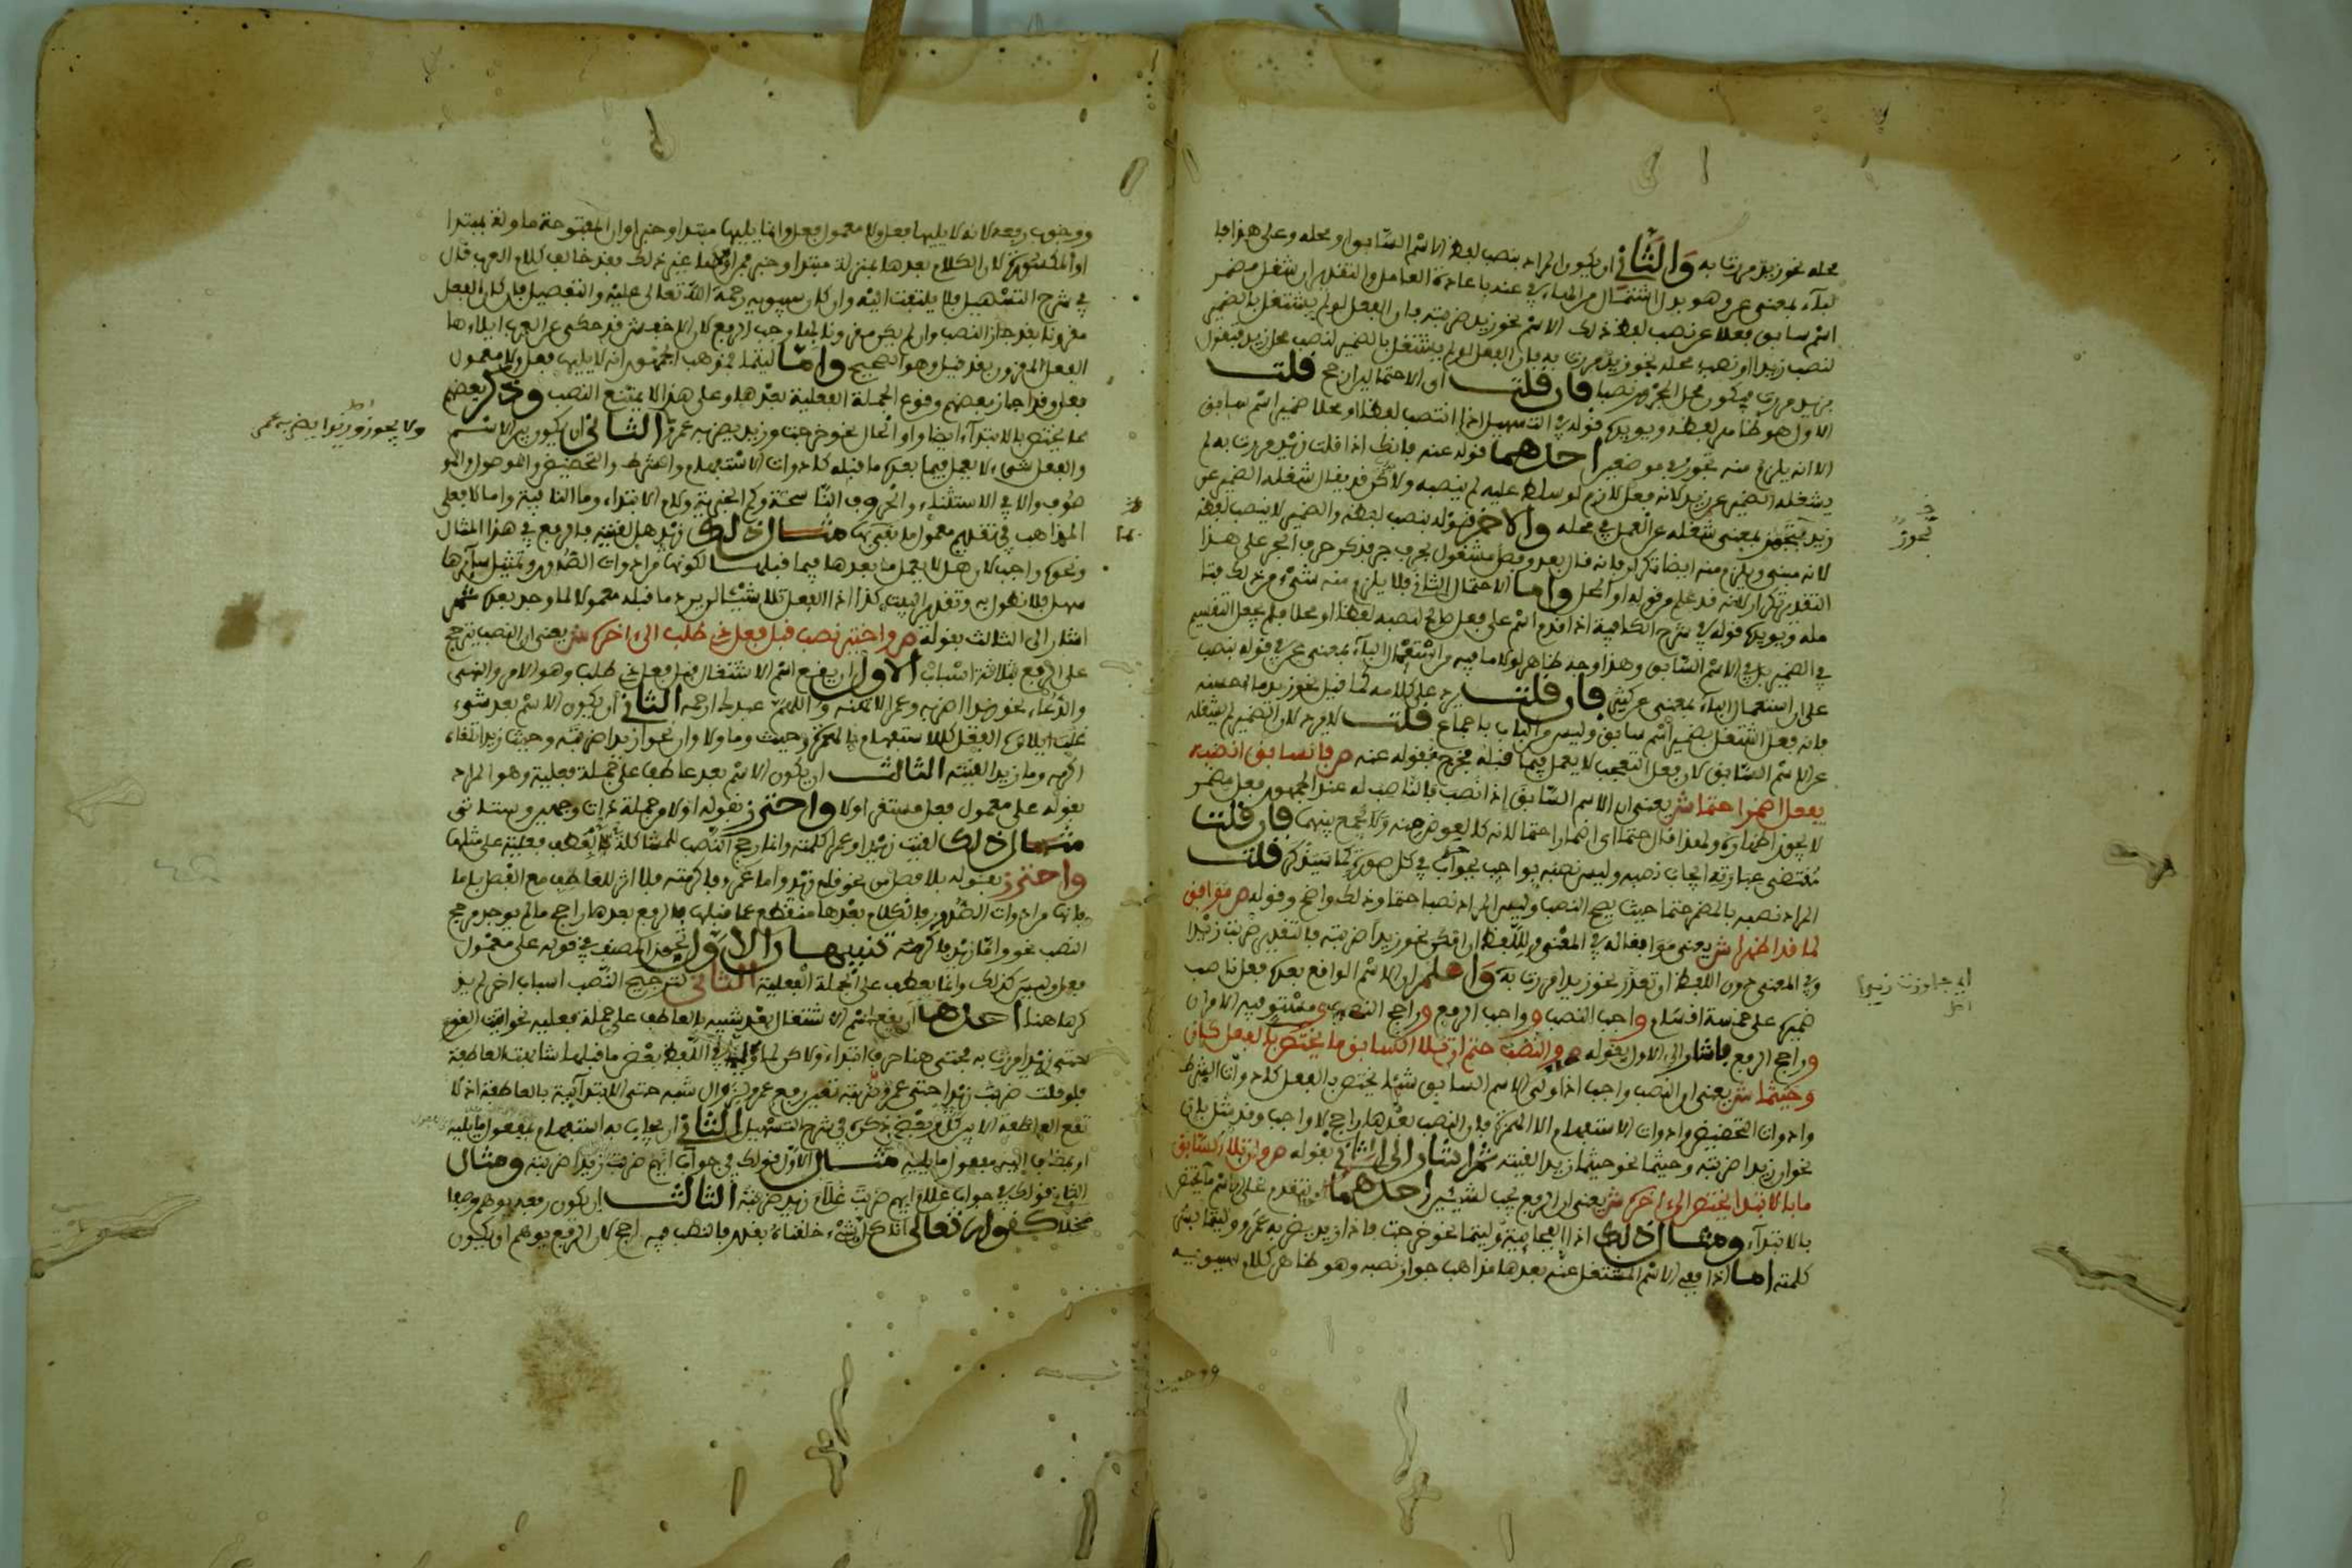 محله نحو زيد مررت به والثاني ان يكون المراد بنصب لفظ الاسم السابق او محله وعلى هذا فا
لباء بمعنى عن وهو بدل اشتمال من الهاء في عنه باعادة العامل والتقدير ان شغل مضمر
اسم سابق فعلا عن نصب لفظ ذلك الاسم نحو زيد ضربته فان الفعل لو لم يشتغل بالضمير
لنصب زيدا او نصب محله نحو زيد مررت به فان الفعل لو لم يشتغل بالضمير لنصب محل زيد فتقول
بزيد مررت فيكون محل المجرور نصبا فان قلت اي الاحتمالين ارجح قلت
الاول هو ظاهر لفظه ويويده قوله في التسهيل اذا انتصب لفظا او محلا ضمير اسم سابق
الا انه يلزم منه تجوز في موضعين احدهما قوله عنه فانك اذا قلت زيد مررت به لم
يشغله الضمير عن زيد لانه فعل لازم لو سلط عليه لم ينصبه ولاكن قد يقال شغله الضمير عن
زيد بمعنى شغله عن العمل في محله والاخر قوله بنصب لفظه والضمير لا ينصب لفظه
لانه مبني ويلزم منه ايضا تكرار فانه قال بعد وفصل مشغول بحرف جر فذكر حرف الجر على هذا
التقدير تكرار لانه قد علم من قوله او المحل واما الاحتمال الثاني فلا يلزم منه شيء من ذلك فتا
مله ويويده قوله في شرح الكافية اذا تقدم اسم على فعل صالح لنصبه لفظا او محلا فلم يجعل التقسيم
في الضمير بل في الاسم السابق وهذا وجه ظاهر لولا ما فيه من استعمال الباء بمعنى عن في قوله بنصب
على ان استعمال الباء بمعنى عن كثير فان قلت يرد على كلامه كما قيل نحو زيد ما احسنه
فانه فعل اشتغل بضمير اسم سابق وليس من الباب باجماع قلت لا يرد لان الضمير لم يشغله
عن الاسم السابق لان فعل التعجب لا يعمل فيما قبله فخرج بقوله عنه ص فالسابق انصبه
بفعل اضمرا حتما ش يعني ان الاسم السابق اذا نصب فالناصب له عند الجمهور فعل مضمر
لا يجوز اظهاره ولهذا قال حتما اي اضمارا حتما لانه كالعوض منه ولا يجمع بينهما فان قلت
مقتضى عبارته ايجاب نصبه وليس نصبه بواجب في كل صورة كما سيذكر قلت
المراد نصبه بالمضمر حتما حيث يصح النصب وليس المراد نصبا حتما وذلك واضح وقوله ص موافق
لما قد اظهرا ش يعني موافقا له في المعنى واللفظ ان امكن نحو زيدا ضربته فالتقدير ضربت زيدا
وفي المعنى دون اللفظ ان تعذر نحو زيدا مررت به واعلم ان الاسم الواقع بعده فعل ناصب
ضميره على خمسة اقسام واجب النصب وواجب الرفع وراجح النصب ومستو فيه الامران
وراجح الرفع فاشار الى الاول بقوله ص والنصب حتم ان تلا السابق ما يختص بالفعل كان
وحيثما ش يعني ان النصب واجب اذا ولي الاسم السابق شيئا يختص بالفعل كادوات الشرط
وادوات التحضيض وادوات الاستفهام الا الهمزة فان النصب بعدها راجح لا واجب وقد مثل بان
نحو ان زيدا ضربته وحيثما نحو حيثما زيدا لقيته ثم اشار الى الثاني بقوله ص وان تلا السابق
ما بالابتدا يختص الى اخره ش يعني ان الرفع يجب لشيئين احدهما ان يتقدم على الاسم ما يختص
بالابتداء ومثال ذلك اذا الفجائية وليتما نحو خرجت فاذا زيد يضربه عمرو وليتما بشر
كلمته اما اذا ففي الاسم المشتغل عنه بعدها مذاهب جواز نصبه وهو ظاهر كلام سيبويه
ووجوب
تجوز
اي جاوزت زيدا
اصل
ووجوب رفعه لانه لا يليها فعل ولا معمول فعل وانما يليها مبتدا او خبر او ان المفتوحة مأولة بمبتدا
او المكسورة لان الكلام بعدها بمنزلة مبتدا وخبر فمن اولاها غير ذلك فقد خالف كلام العرب قال
في شرح التسهيل فلا يلتفت اليه وان كان سيبويه رحمة الله تعالى عليه والتفصيل فان كان الفعل
مقرونا بقد جاز النصب وان لم يكن مقرونا بها وجب الرفع لان الاخفش قد حكى عن العرب ايلاءها
الفعل المقرون بقد قيل وهو الصحيح واما ليتما فمذهب الجمهور انه لا يليها فعل ولا معمول
فعل وقد اجاز بعضهم وقوع الجملة الفعلية بعدها وعلى هذا لا يمتنع النصب وذكر بعضهم
مما يختص بالابتداء ايضا واو الحال نحو خرجت وزيد يضربه عمرو الثاني ان يكون بين الاسم
والفعل شيء لا يعمل فيما بعده ما قبله كادوات الاستفهام والشرط والتحضيض والموصول والمو
صوف والا في الاستثناء والحروف الناسخة وكم الخبرية ولام الابتداء وما النافية واما لا فعلى
المذاهب في تقديم معمول ما بعدها مثال ذلك زيد هل لقيته فالرفع في هذا المثال
ونحوه واجب لان هل لا يعمل ما بعدها فيما قبلها لكونها من ادوات الصدور وتمثيل سائرها
سهل فلا نطول به وتقدير البيت كذا اذا الفعل تلا شيئا لن يرد ما قبله معمولا لما وجد بعده ثم
اشار الى الثالث بقوله ص واختير نصب قبل فعل ذي طلب الى اخره ش يعني ان النصب يترجح
على الرفع بثلاثة اسباب الاول ان يقع اسم الاشتغال قبل فعل ذي طلب وهو الامر والنهي
والدعاء نحو زيدا اضربه وعمرا لا تهنه واللهم عبدك ارحمه الثاني ان يكون الاسم بعد شيء
غلب ايلاؤه الفعل كالاستفهام بالهمزة وحيث وما ولا وان نحو ازيدا ضربته وحيث زيدا تلقاه
اكرمه وما زيدا لقيته الثالث ان يكون الاسم بعد عاطف على جملة فعلية وهو المراد
بقوله على معمول فعل مستقر اولا واحترز بقوله اولا من جملة ذات وجهين وستاتي
مثال ذلك لقيت زيدا وعمرا كلمته وانما رجح النصب للمشاكلة بعطف فعلية على مثلها
واحترز بقوله بلا فصل من نحو قام زيد واما عمرو فاكرمته فلا اثر للعاطف مع الفصل باما
فانها من ادوات الصدور فالكلام بعدها منقطع عما قبلها فالرفع بعدها راجح ما لم يوجد مرجح
النصب نحو واما زيدا فاكرمه تنبيهان الاول تجوز المصنف في قوله على معمول
فعل وليس كذلك وانما يعطف على الجملة الفعلية الثاني لترجيح النصب اسباب اخر لم يذ
كرها هنا احدها ان يقع اسم الاشتغال بعد شبيه بالعاطف على جملة فعلية نحو اتيت القوم
حتى زيدا مررت به فحتى هنا حرف ابتداء ولاكن لما وليها في اللفظ بعض ما قبلها شابهت العاطفة
فلو قلت ضربت زيدا حتى عمرو ضربته تعين رفع عمرو لزوال شبه حتى الابتدائية بالعاطفة اذ لا
تقع العاطفة الا بين كل وبعض ذكره في شرح التسهيل الثاني ان يجاب به استفهام بمفعول ما يليه
او بمضاف اليه مفعول ما يليه مثال الاول قولك في جواب ايهم ضربت زيدا ضربته ومثال
الثاني قولك في جواب غلام ايهم ضربت غلام زيد ضربته الثالث ان يكون رفعه يوهم وصفا
مخلا كقوله تعالى انا كل شيء خلقناه بقدر فالنصب فيه ارجح لان الرفع يوهم ان يكون
ولا يجوز وزيدا يضربه عمر